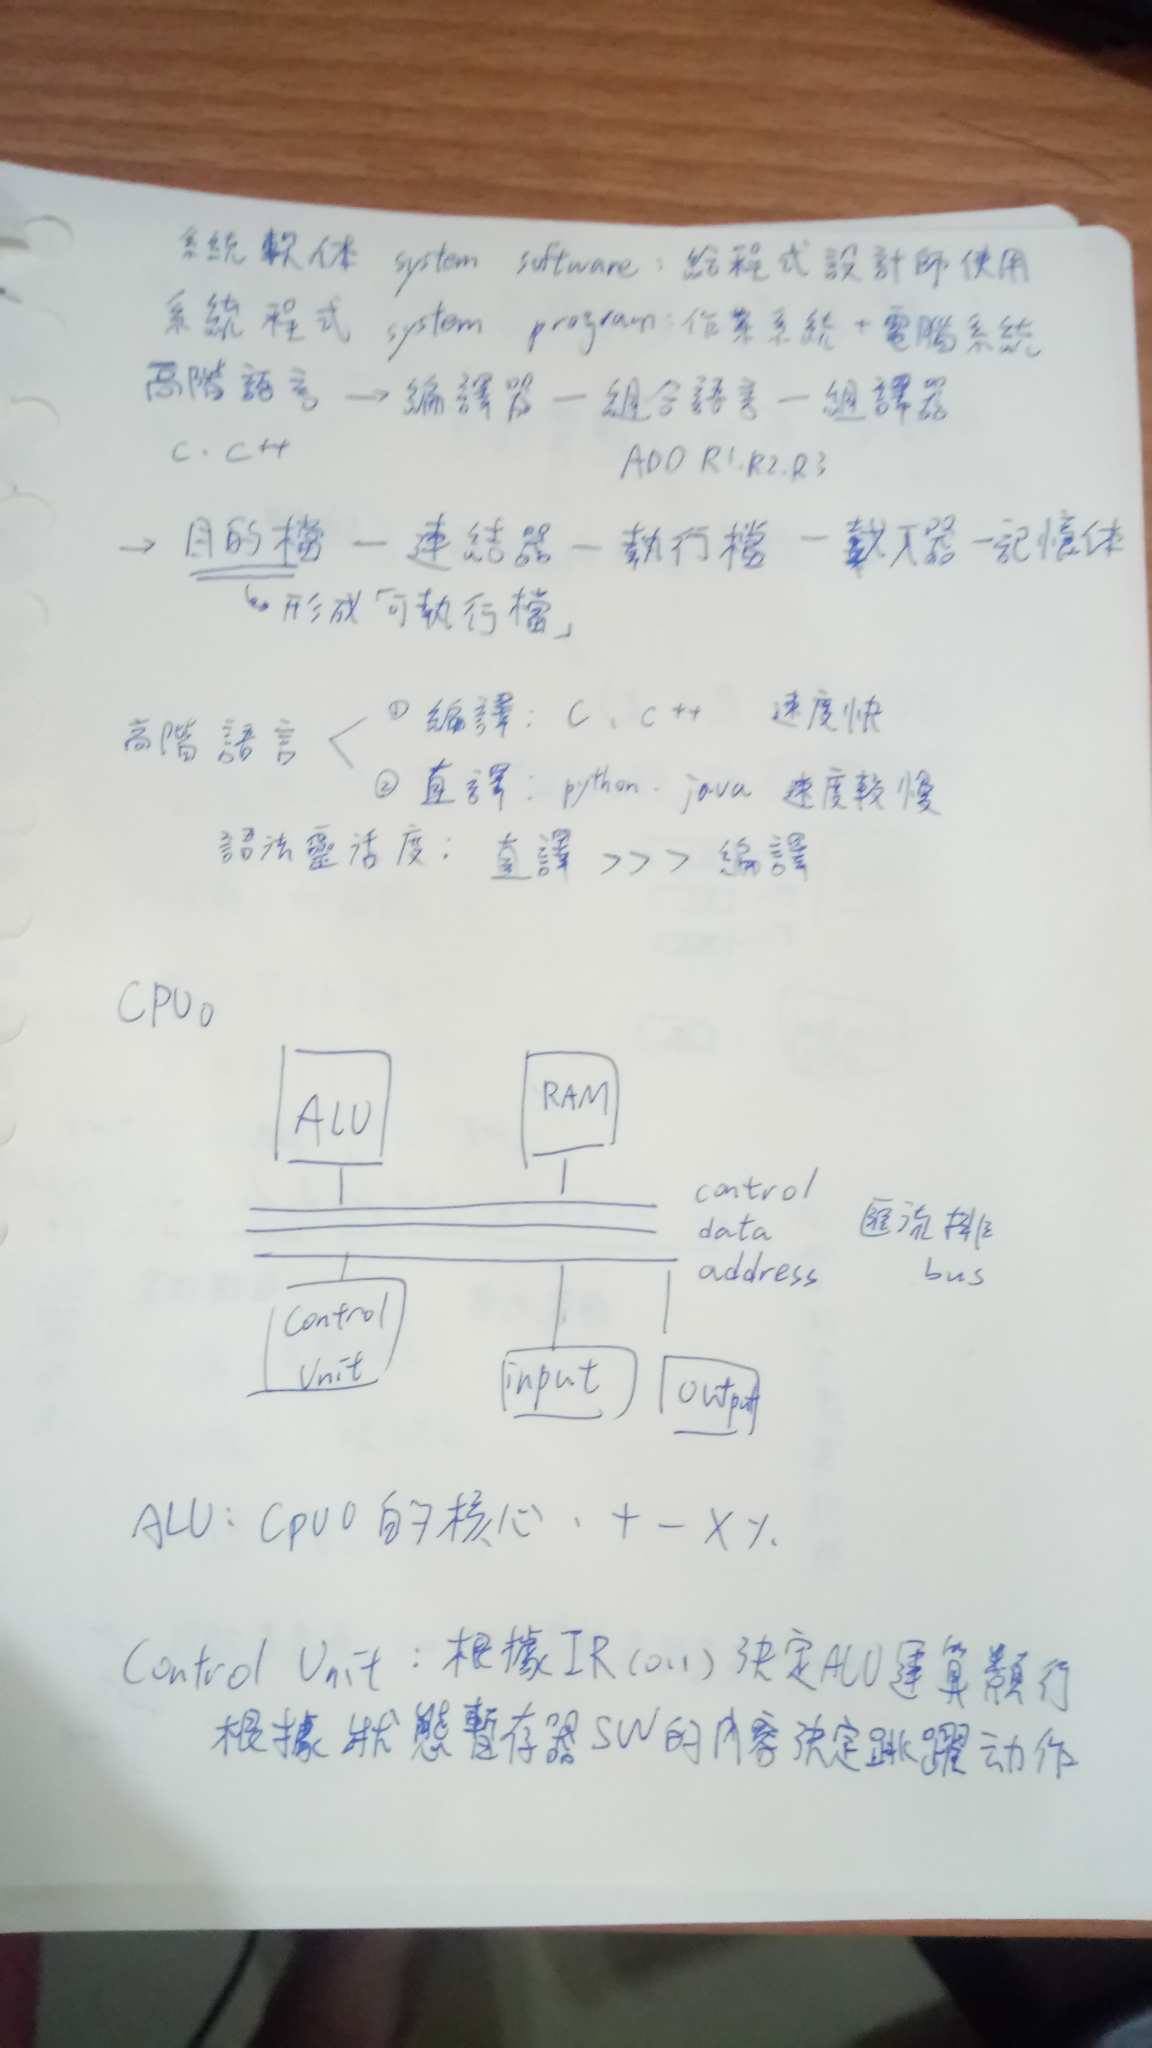 系統軟体 system software：給程式設計師使用
系統程式 system program：作業系統 + 電腦系統
高階語言 → 編譯器 — 組合語言 — 組譯器
C、C++ ADD R1、R2、R3
→ 目的檔 — 連結器 — 執行檔 — 載入器 — 記憶体
形成「可執行檔」
高階語言 < ① 編譯：C、C++ 速度快
② 直譯：python、java 速度較慢
語法靈活度：直譯 >>> 編譯
CPU0
ALU RAM
control
data 匯流排
address bus
Control
Unit
input output
ALU：CPU0 的核心、+ - × %
Control Unit：根據IR 決定ALU運算類行
根據狀態暫存器SW的內容決定跳躍动作